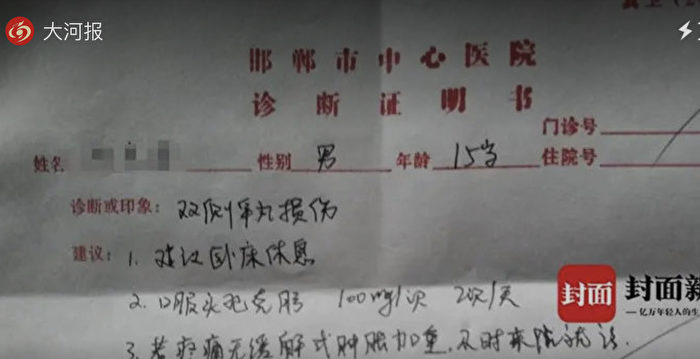 大河报
邯郸市中心医院
诊断证明书
门诊号
姓名 性别 男 年龄 15岁 住院号
诊断或印象: 双侧睾丸损伤
建议: 1. 建议卧床休息
2. 口服头孢克肟 100mg/次 2次/天
封面 封面新
—亿万年轻人的生
3. 若疼痛无缓解或肿胀加重,及时来院就诊.